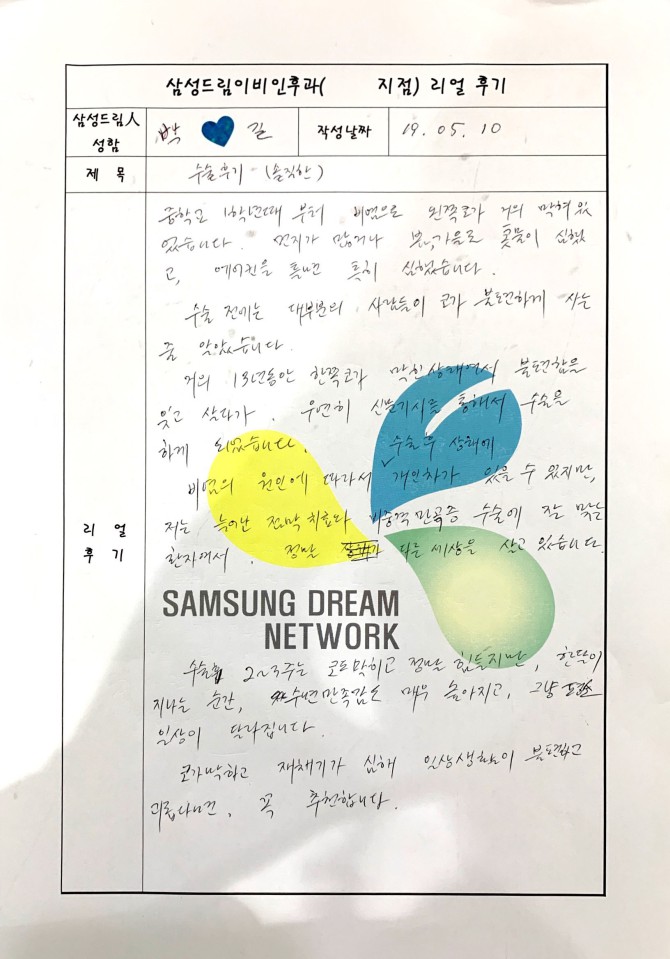 삼성드림이비인후과( 지점) 리얼 후기
삼성드림人
성함
박 길
작성날짜
19. 05. 10
제 목
수술후기 (솔직한)
리 얼
후 기
중학교 1학년때 부터 비염으로 왼쪽코가 거의 막혀있
었습니다. 먼지가 많거나 봄,가을로 콧물이 심했
고, 에어컨을 틀면 특히 심했습니다.
수술 전에는 대부분의 사람들이 코가 불편하게 사는
줄 알았습니다.
거의 13년동안 한쪽코가 막힌상태에서 불편함을
잊고 살다가. 우연히 신문기사를 통해서 수술을
하게 되었습니다. 수술후 상태에
비염의 원인에 따라서 개인차가 있을 수 있지만,
저는 늘어난 점막치료와 비중격만곡증 수술에 잘 맞는
환자여서. 정말 다른세상을 살고있습니다.
SAMSUNG DREAM
NETWORK
수술후 2~3주는 코도막히고 정말 힘들지만, 한달이
지나는 순간, 수면만족감도 매우 높아지고, 그냥
일상이 달라집니다.
코가막히고 재채기가 심해 일상생활이 불편하고
괴롭다면, 꼭 추천합니다.